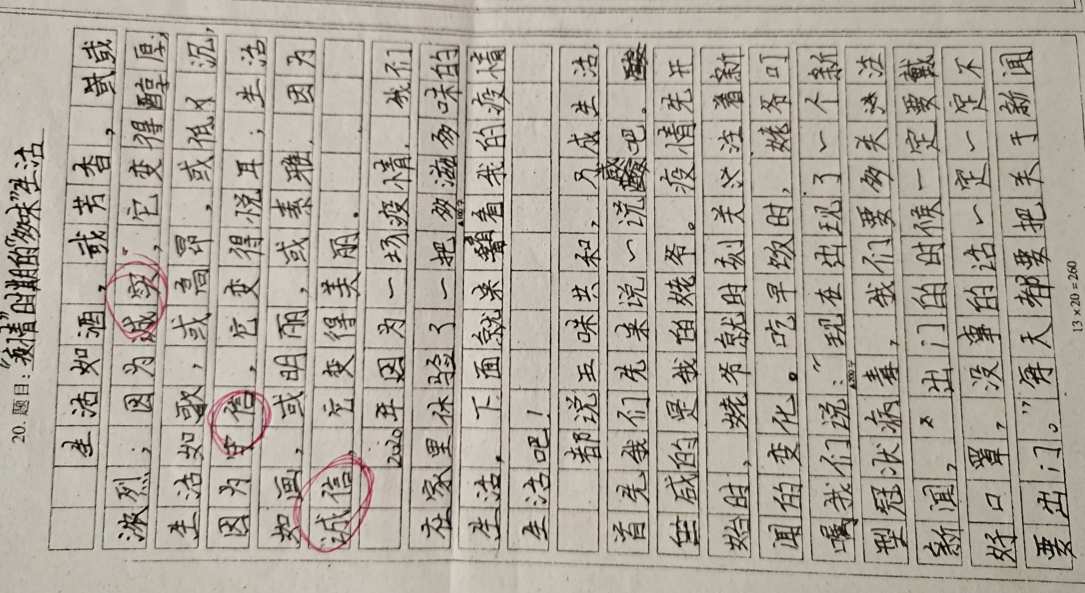 20. 题目：“疫情”时期的“多味”生活
生活如酒，或芳香，或
浓烈；因为诚实，它变得醇厚，
生活如歌，或高昂，或低沉，
因为守信，它变得悦耳；生活
如画，或明丽，或素雅，因为
诚信，它变得美丽。
2020年因为一场疫情，我们
在家里体验了一把多滋多味的
生活，下面就来看看我的疫情
生活吧！
都说五味共和，方成生活，
首先我们先来说一说酸吧。
生成的是我的姥爷。疫情先开
始时，姥爷就时刻关注着新
闻的变化。吃早饭时，姥爷叮
嘱我们说：“现在出现了一个新
型冠状病毒，我们要多关注
新闻，出门的时候一定要戴
好口罩，没事的话一定一定不
要出门。”每天都要把关于新闻
13×20=260